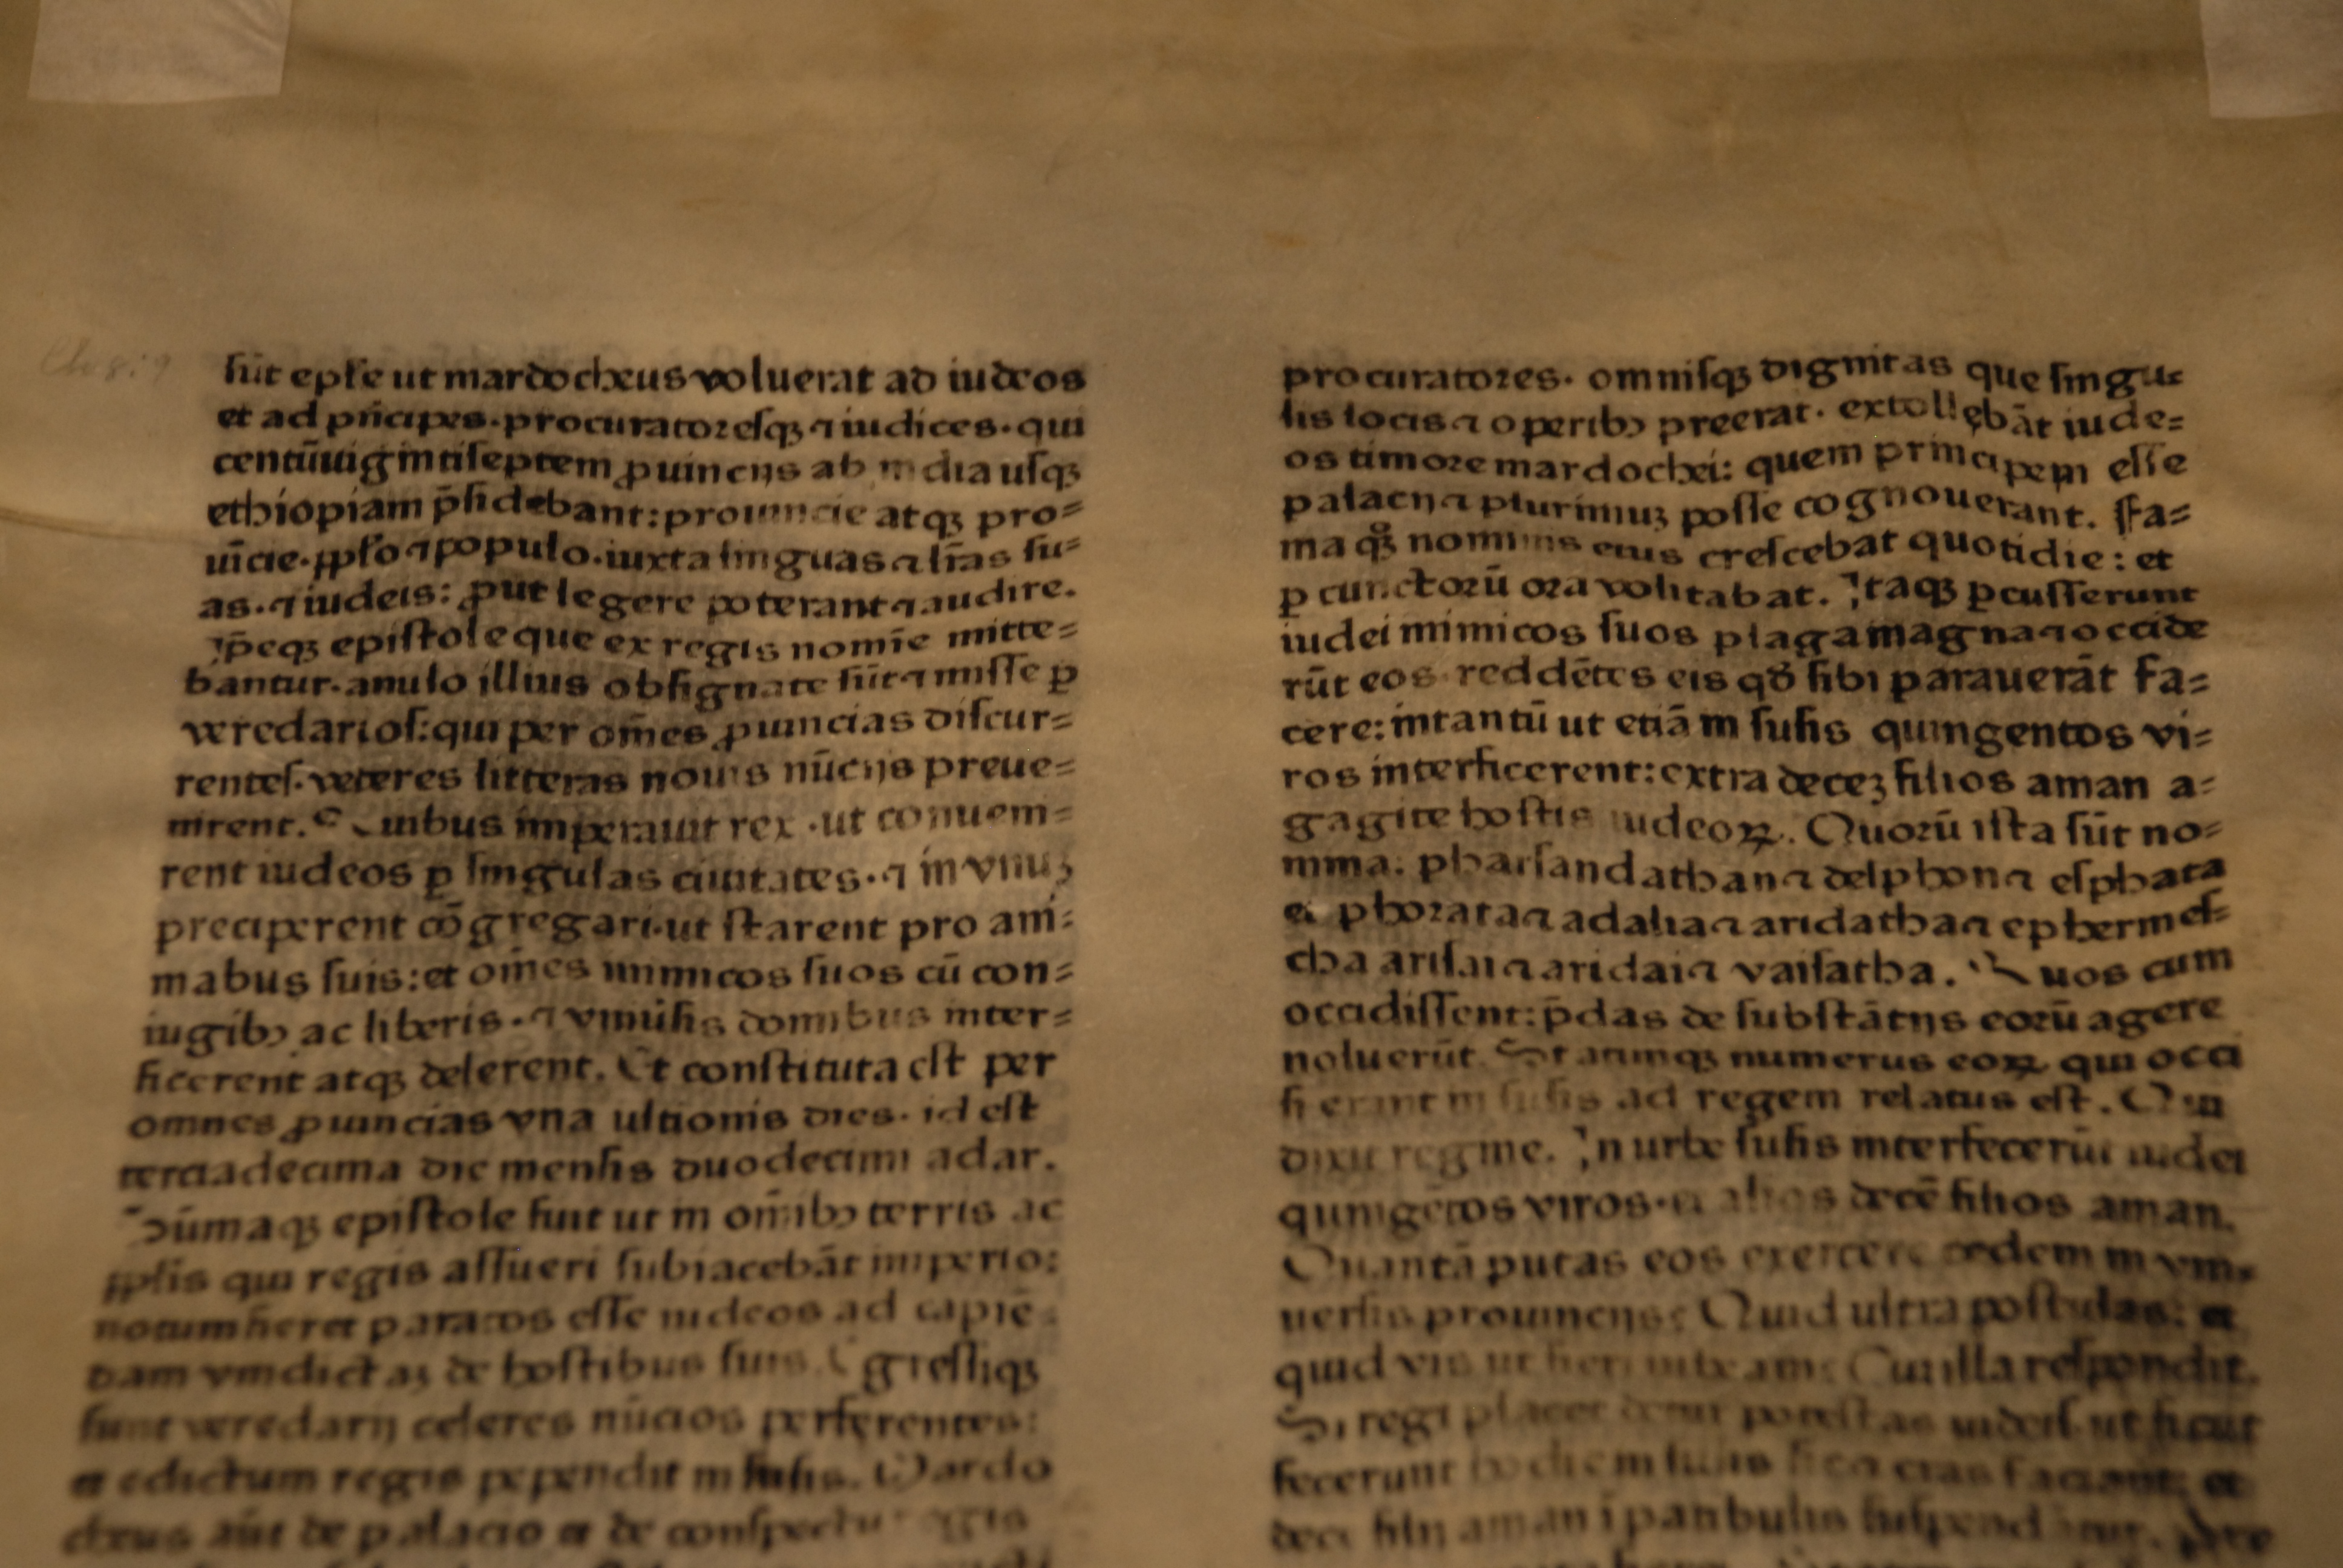 sūt epłe ut mardocheus voluerat ad iudeos
et ad pñcipes·procuratoresqꝫ ⁊ iudices·qui
centūuigintiseptem ꝓuincijs ab india usqꝫ
ethiopiam p̄sidebant:prouincie atqꝫ pro=
uīcie·pp̄lo ⁊ populo·iuxta linguas ⁊ lr̄as su=
as·⁊ iudeis: ꝓut legere poterant ⁊ audire.
Ip̄eqꝫ epistole que ex regis nomīe mitte=
bantur·anulo illius obsignate sūt ⁊ misse ꝑ
veredarios:qui per om̄es ꝓuincias discur=
rentes·veteres litteras nouis nūcijs preue=
nirent. Quibus imperauit rex·ut conueni=
rent iudeos ꝑ singulas ciuitates·⁊ in vnuꝫ
preciperent cōgregari·ut starent pro ani=
mabus suis:et om̄es inimicos suos cū con=
iugibꝰ ac liberis·⁊ vniūsis domibus inter=
ficerent atqꝫ delerent. Et constituta est per
omnes ꝓuincias vna ultionis dies·id est
terciadecima die mensis duodecimi adar.
Sūmaqꝫ epistole fuit ut in om̄ibꝰ terris ac
pp̄lis qui regis assueri subiacebāt imperio:
notumfieret paratos esse iudeos ad capiē
dam vindictaꝫ de hostibus suis. Egressiqꝫ
sunt veredarij celeres nūcios perferentes:
et edictum regis pependit in susis. Mardo
cheus aūt de palacio et de conspectu regis
procuratores· omnisqꝫ dignitas que singu=
lis locis ⁊ operibꝰ preerat·extollebāt iude=
os timore mardochei: quem principem esse
palacij ⁊ plurimuꝫ posse cognouerant. Fa=
ma qꝫ nominis eius crescebat quotidie: et
ꝑ cunctorū ora volitabat. Itaqꝫ ꝑcusserunt
iudei inimicos suos plaga magna ⁊ occide
rūt eos·reddētes eis qđ sibi parauerāt fa=
cere: intantū ut etiā in susis quingentos vi=
ros interficerent:extra deceꝫ filios aman a=
gagite hostis iudeoꝝ. Quorū ista sūt no=
mina: pharsandathan ⁊ delphon ⁊ esphata
et phorata ⁊ adalia ⁊ aridatha ⁊ ephermes=
cha arisai ⁊ aridai ⁊ vaisatha. Quos cum
occidissent:p̄das de substātijs eorū agere
noluerūt. Statimqꝫ numerus eoꝝ qui occi
si erant in susis ad regem relatus est. Qui
dixit regine. In urbe susis interfecerūt iudei
quingētos viros·et alios decē filios aman.
Quantā putas eos exercere cedem in vni=
uersis prouincijs? Quid ultra postulas: et
quid vis ut fieri iubeam? Cui illa respondit.
Si regi placet detur potestas iudeis·ut sicut
fecerunt hodie in susis sic ⁊ cras faciant: et
decē filij aman ī patibulis suspendātur.